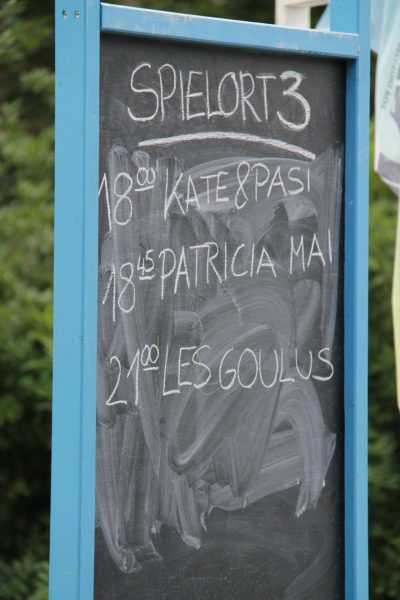 SPIELORT 3
18⁰⁰ KATE&PASI
18⁴⁵ PATRICIA MAI
21⁰⁰ LES GOULUS